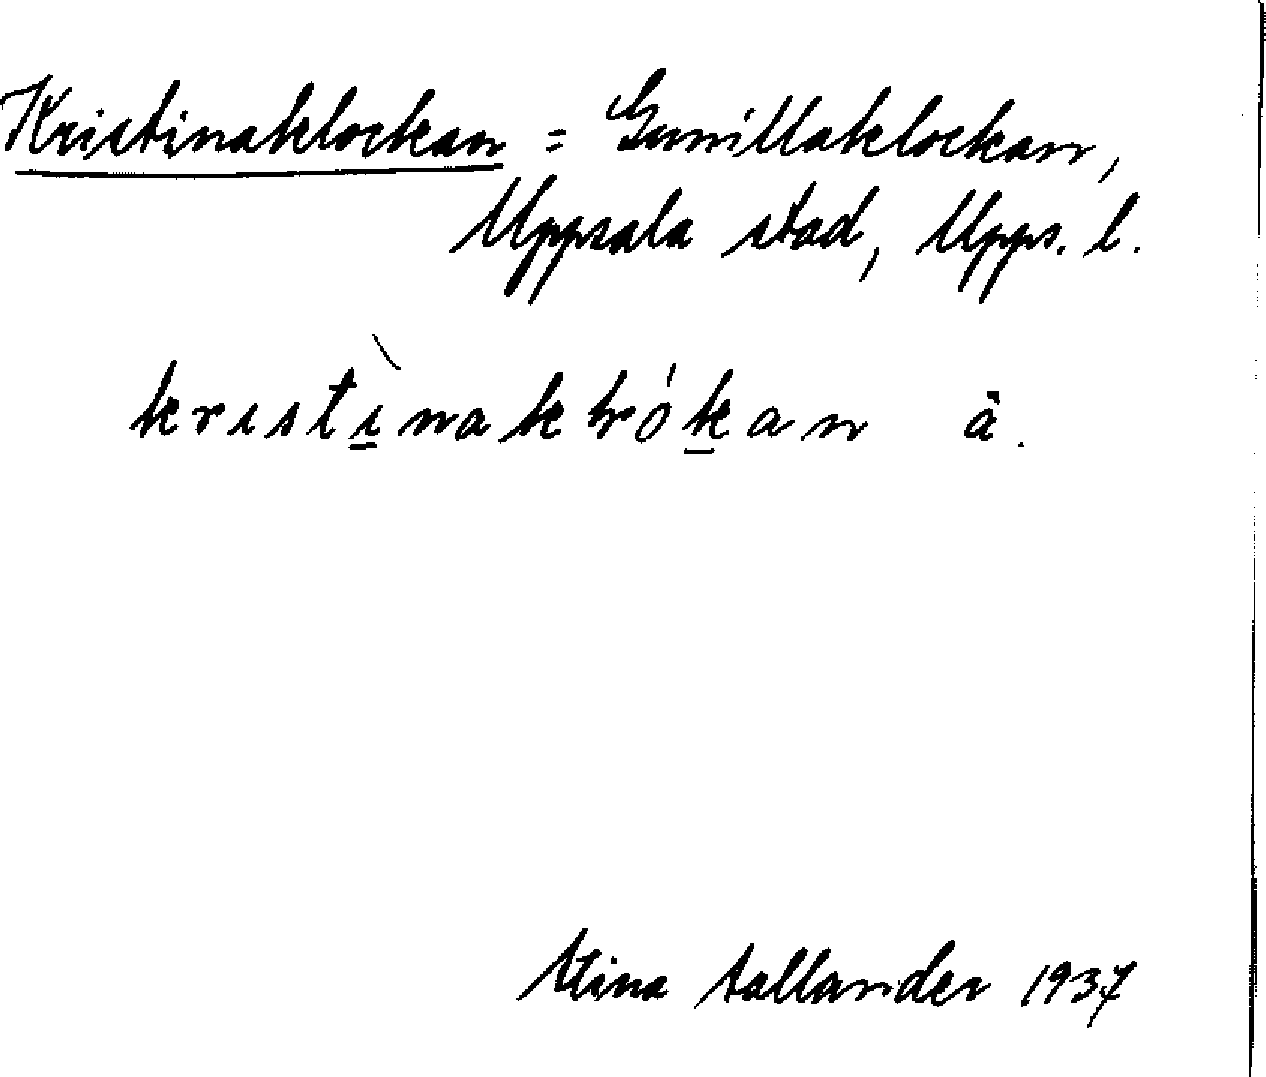 Kristinaklockan = Gunillaklockan,
Uppsala stad, Upps. l.
kristı̀nakłókan ä.
Stina Sallander 1937